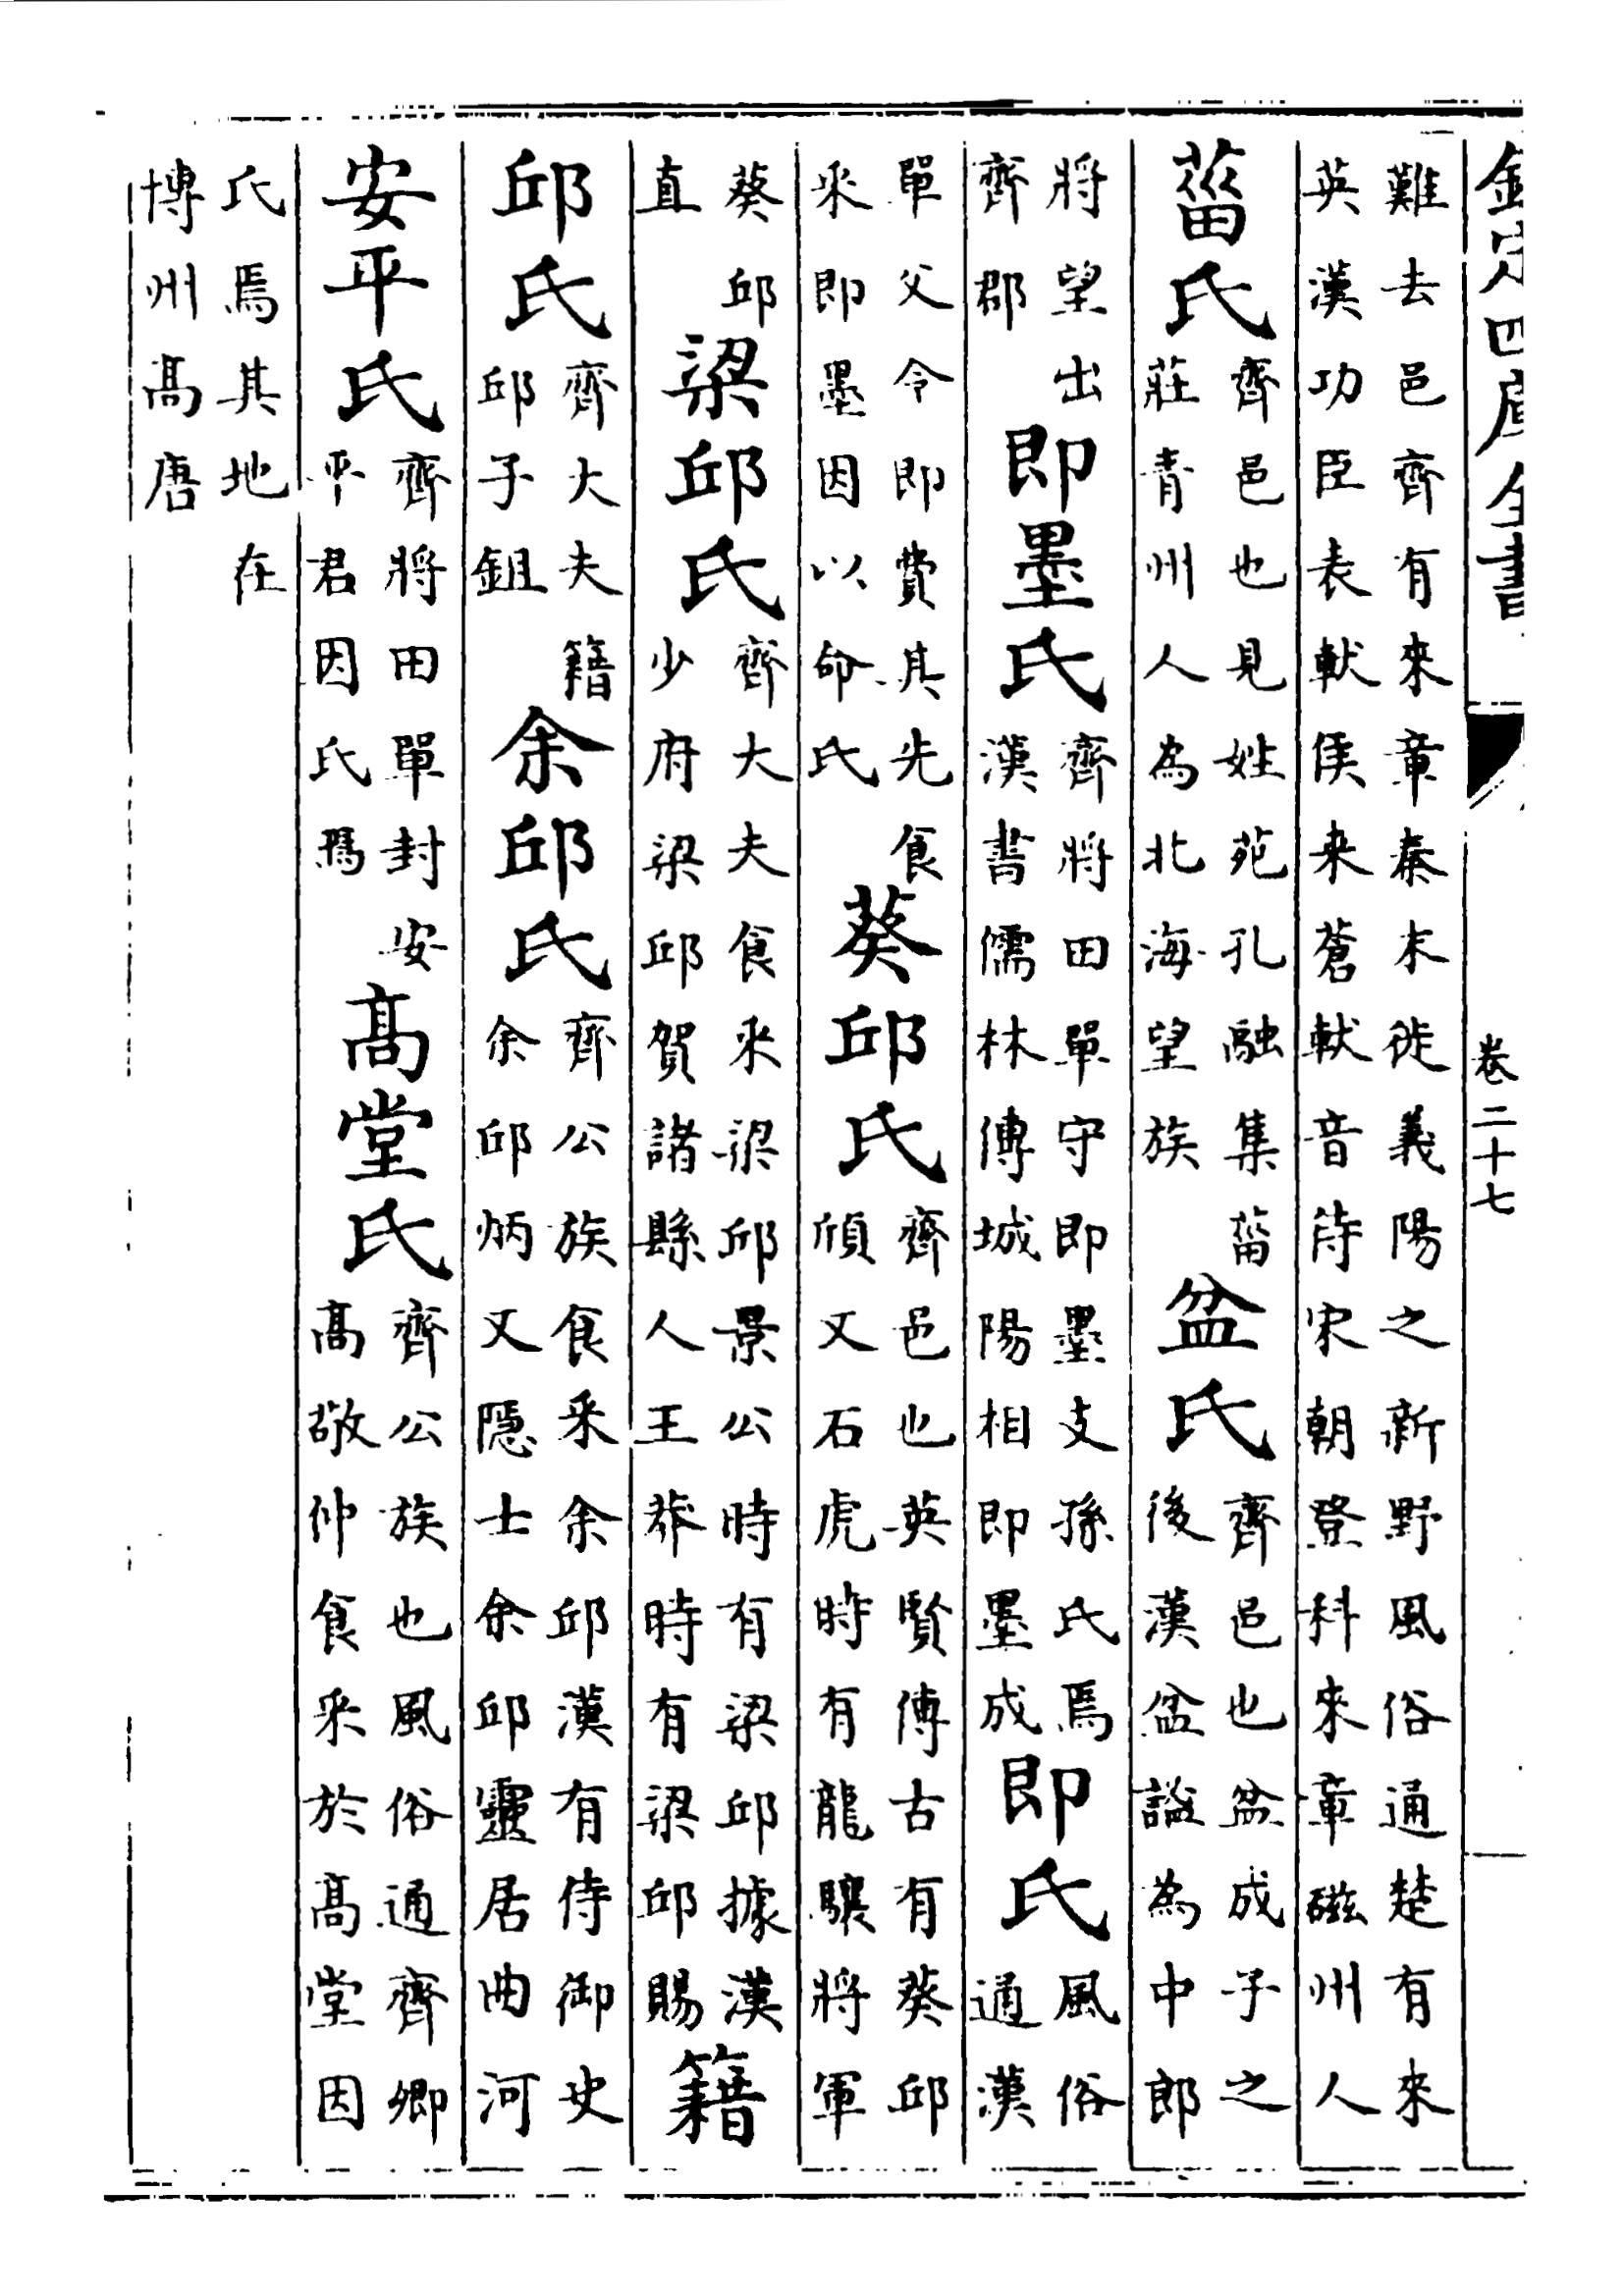 欽定四庫全書 卷二十七
難去邑齊有來章秦末徙義陽之新野風俗通楚有來
英漢功臣表軑侯来蒼軑音待宋朝登科來章磁州人
葘氏
齊邑也見姓苑孔融集葘
莊青州人為北海望族
盆氏
齊邑也盆成子之
後漢盆盆謐為中郎
將望出
齊郡
即墨氏
齊將田單守即墨支孫氏焉
漢書儒林傅城陽相即墨成
即氏
風俗
通漢
單父令即費其先食
采即墨因以命氏
葵邱氏
齊邑也英賢傅古有葵邱
頎又石虎時有龍驤將軍
葵邱
直
梁邱氏
齊大夫食采梁邱景公時有梁邱據漢
少府梁邱賀諸縣人王莽時有梁邱賜
籍
邱氏
齊大夫籍
邱子鉏
余邱氏
齊公族食采余邱漢有侍御史
余邱炳又隱士余邱靈居曲河
安平氏
齊將田單封安
平君因氏焉
髙堂氏
齊公族也風俗通齊卿
髙敬仲食采於髙堂因
氏焉其地在
博州髙唐